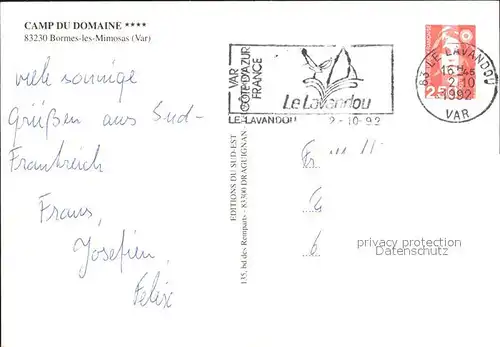 CAMP DU DOMAINE ****
83230 Bormes-les-Mimosas (Var)
viele sonnige
Grüßen aus Süd-
Frankreich
Frans,
Josefien,
Felix
EDITIONS DU SUD-EST
135, bd des Remparts - 83300 DRAGUIGNAN
VAR
CÔTE D'AZUR
FRANCE
Le Lavandou
LE LAVANDOU 2-10-92
83 LE LAVANDOU
16H45
2-10
1992
VAR
Fr
privacy protection
VeryImportantLot.com